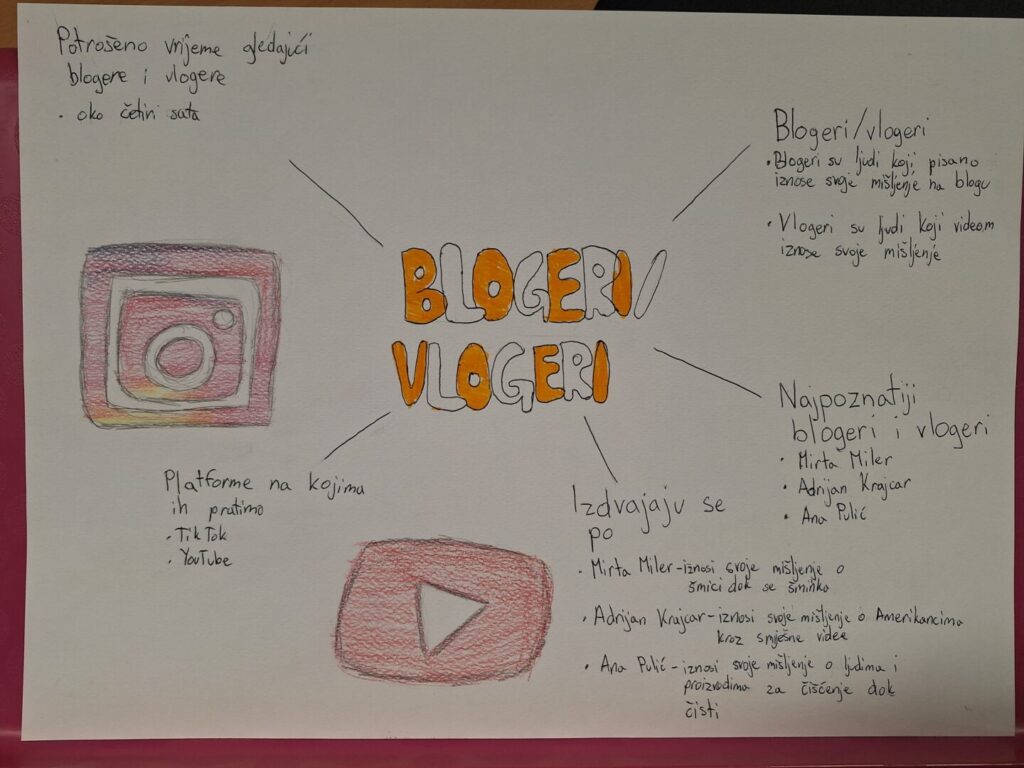 Potrošeno vrijeme gledajući
blogere i vlogere
• oko četiri sata
Blogeri/vlogeri
• Blogeri su ljudi koji pisano
iznose svoje mišljenje na blogu
• Vlogeri su ljudi koji videom
iznose svoje mišljenje
BLOGERI/
VLOGERI
Najpoznatiji
blogeri i vlogeri
• Mirta Miler
• Adrijan Krajcar
• Ana Pulić
Platforme na kojima
ih pratimo
• TikTok
• YouTube
Izdvajaju se
po
• Mirta Miler-iznosi svoje mišljenje o
šmici dok se šminka
• Adrijan Krajcar-iznosi svoje mišljenje o Amerikancima
kroz smješne videe
• Ana Pulić-iznosi svoje mišljenje o ljudima i
proizvodima za čišćenje dok
čisti